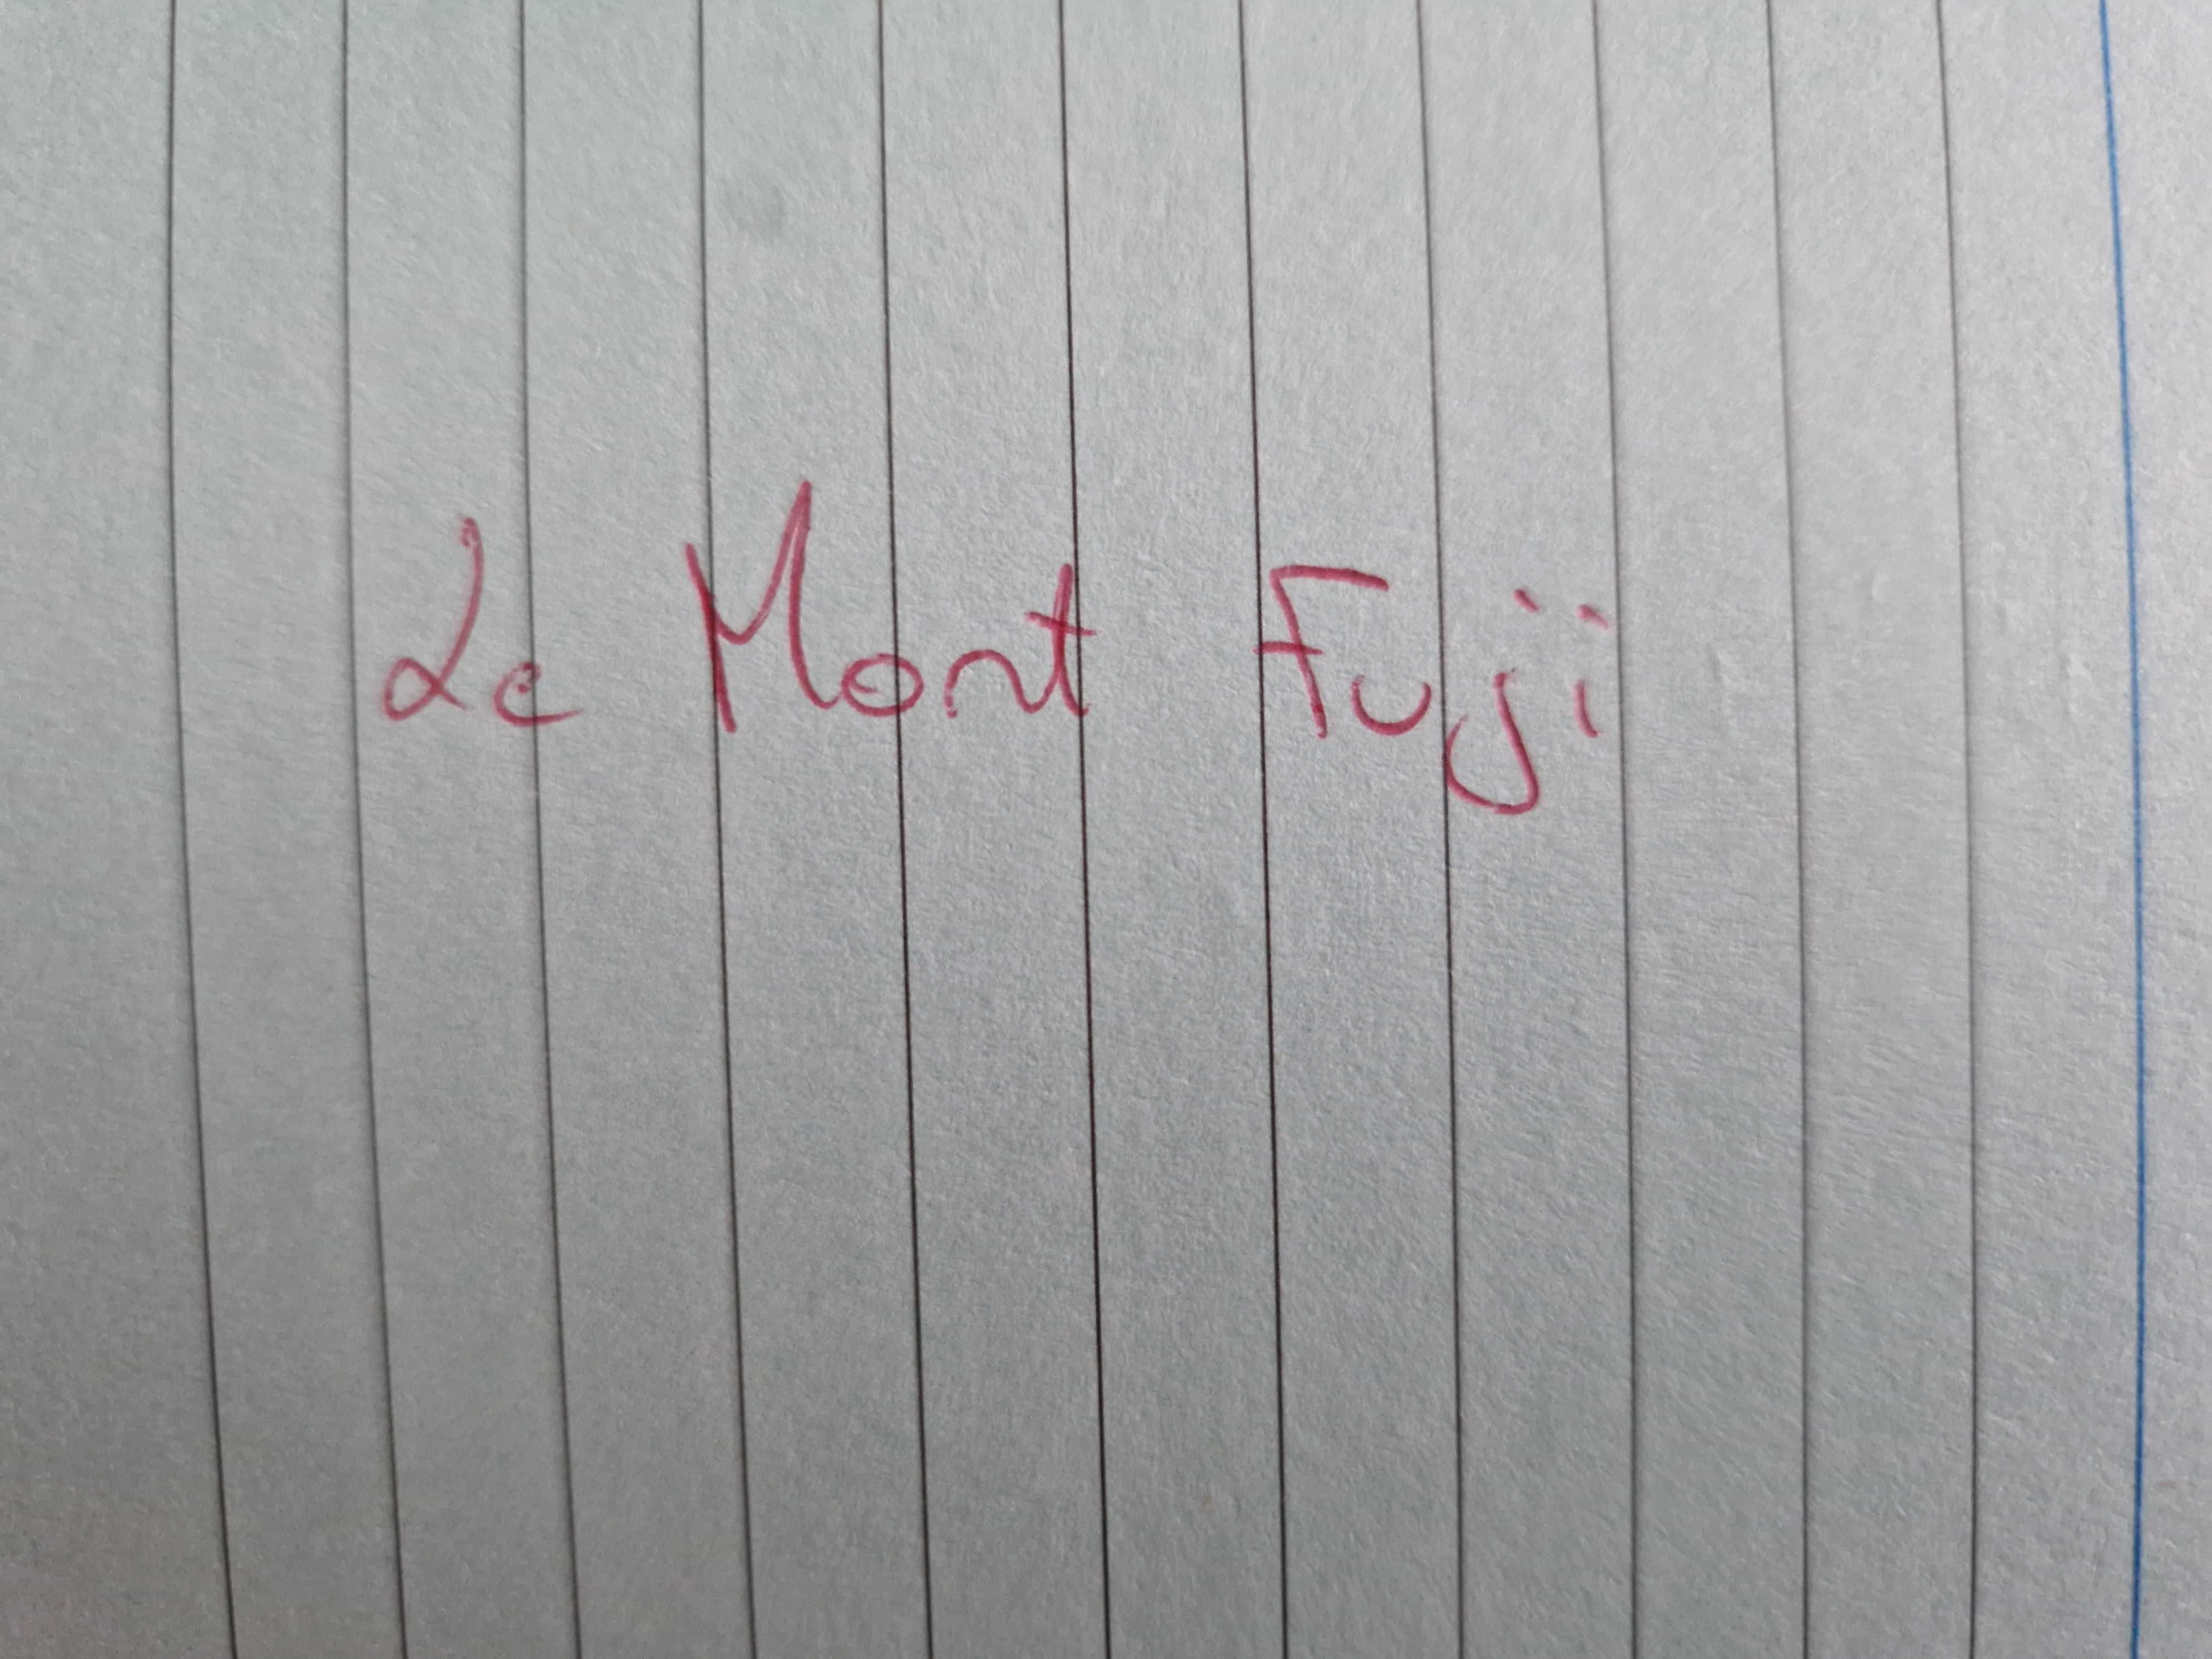 Le Mont Fuji